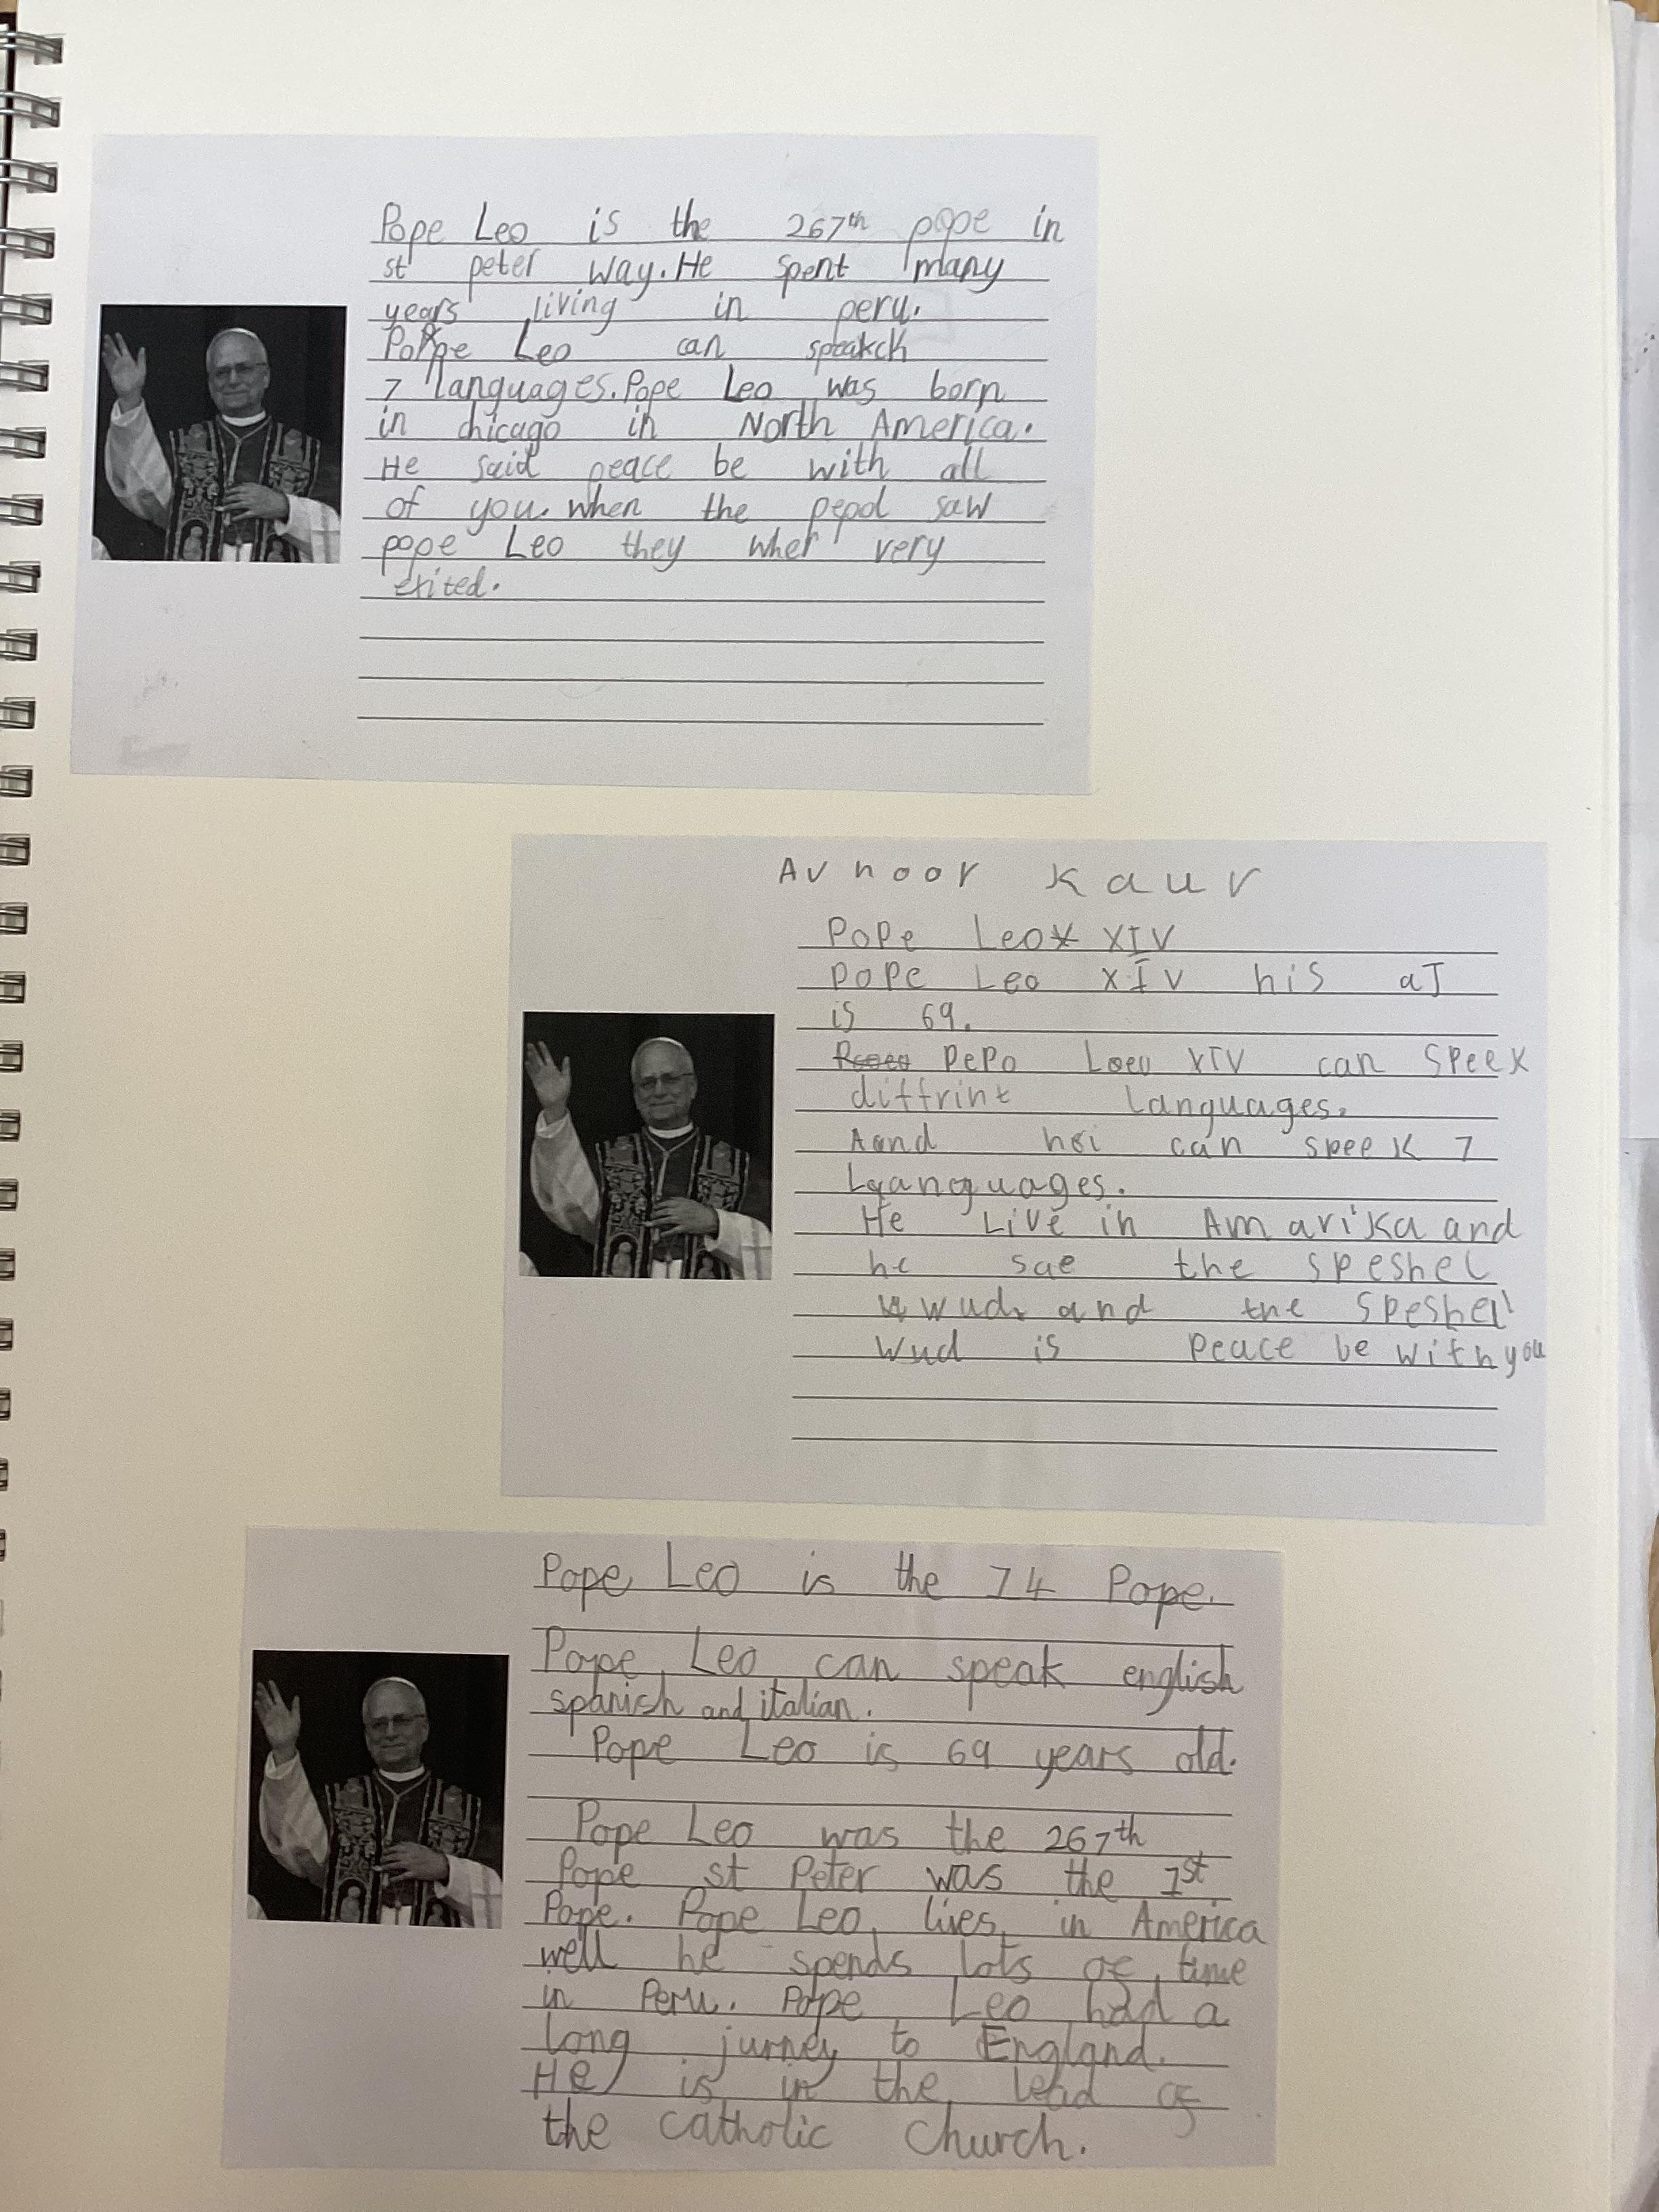 Pope Leo is the 267th pope in
st peter way. He spent many
years living in peru.
Poppe Leo can speakch
7 languages. Pope Leo was born
in chicago in North America.
He said peace be with all
of you. when the pepol saw
pope Leo they wher very
exited.
Avnoor Kaur
Pope Leo XIV
pope Leo XIV his aJ
is 69.
PePo Loeo XIV can SPeeK
diffrint Languages.
Aand hei can speeK 7
Lganguages.
He Live in AmariKa and
he sae the speshel
wud and the Speshel
Wud is Peace be with you
Pope Leo is the 14 Pope.
Pope Leo can speak english
spanish and italian.
Pope Leo is 69 years old.
Pope Leo was the 267th
Pope st Peter was the 1st
Pope. Pope Leo lives in America
well he spends lots of time
in Peru. Pope Leo had a
long jurney to England.
He is in the lead of
the catholic church.